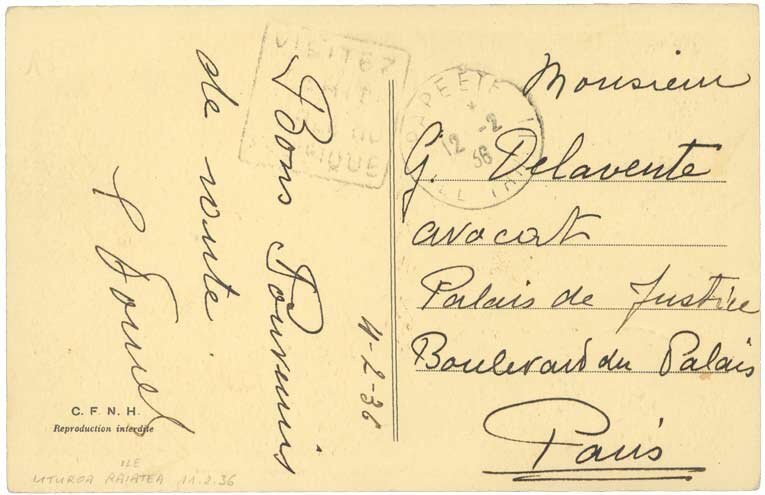 VISITEZ
PAPEETE
12 -2
36
Bons Souvenirs
de route
4-2-36
Monsieur
G. Delavente
avocat
Palais de Justice
Boulevard du Palais
Paris
C. F. N. H.
Reproduction interdite
ILE
UTUROA RAIATEA 11.2.36